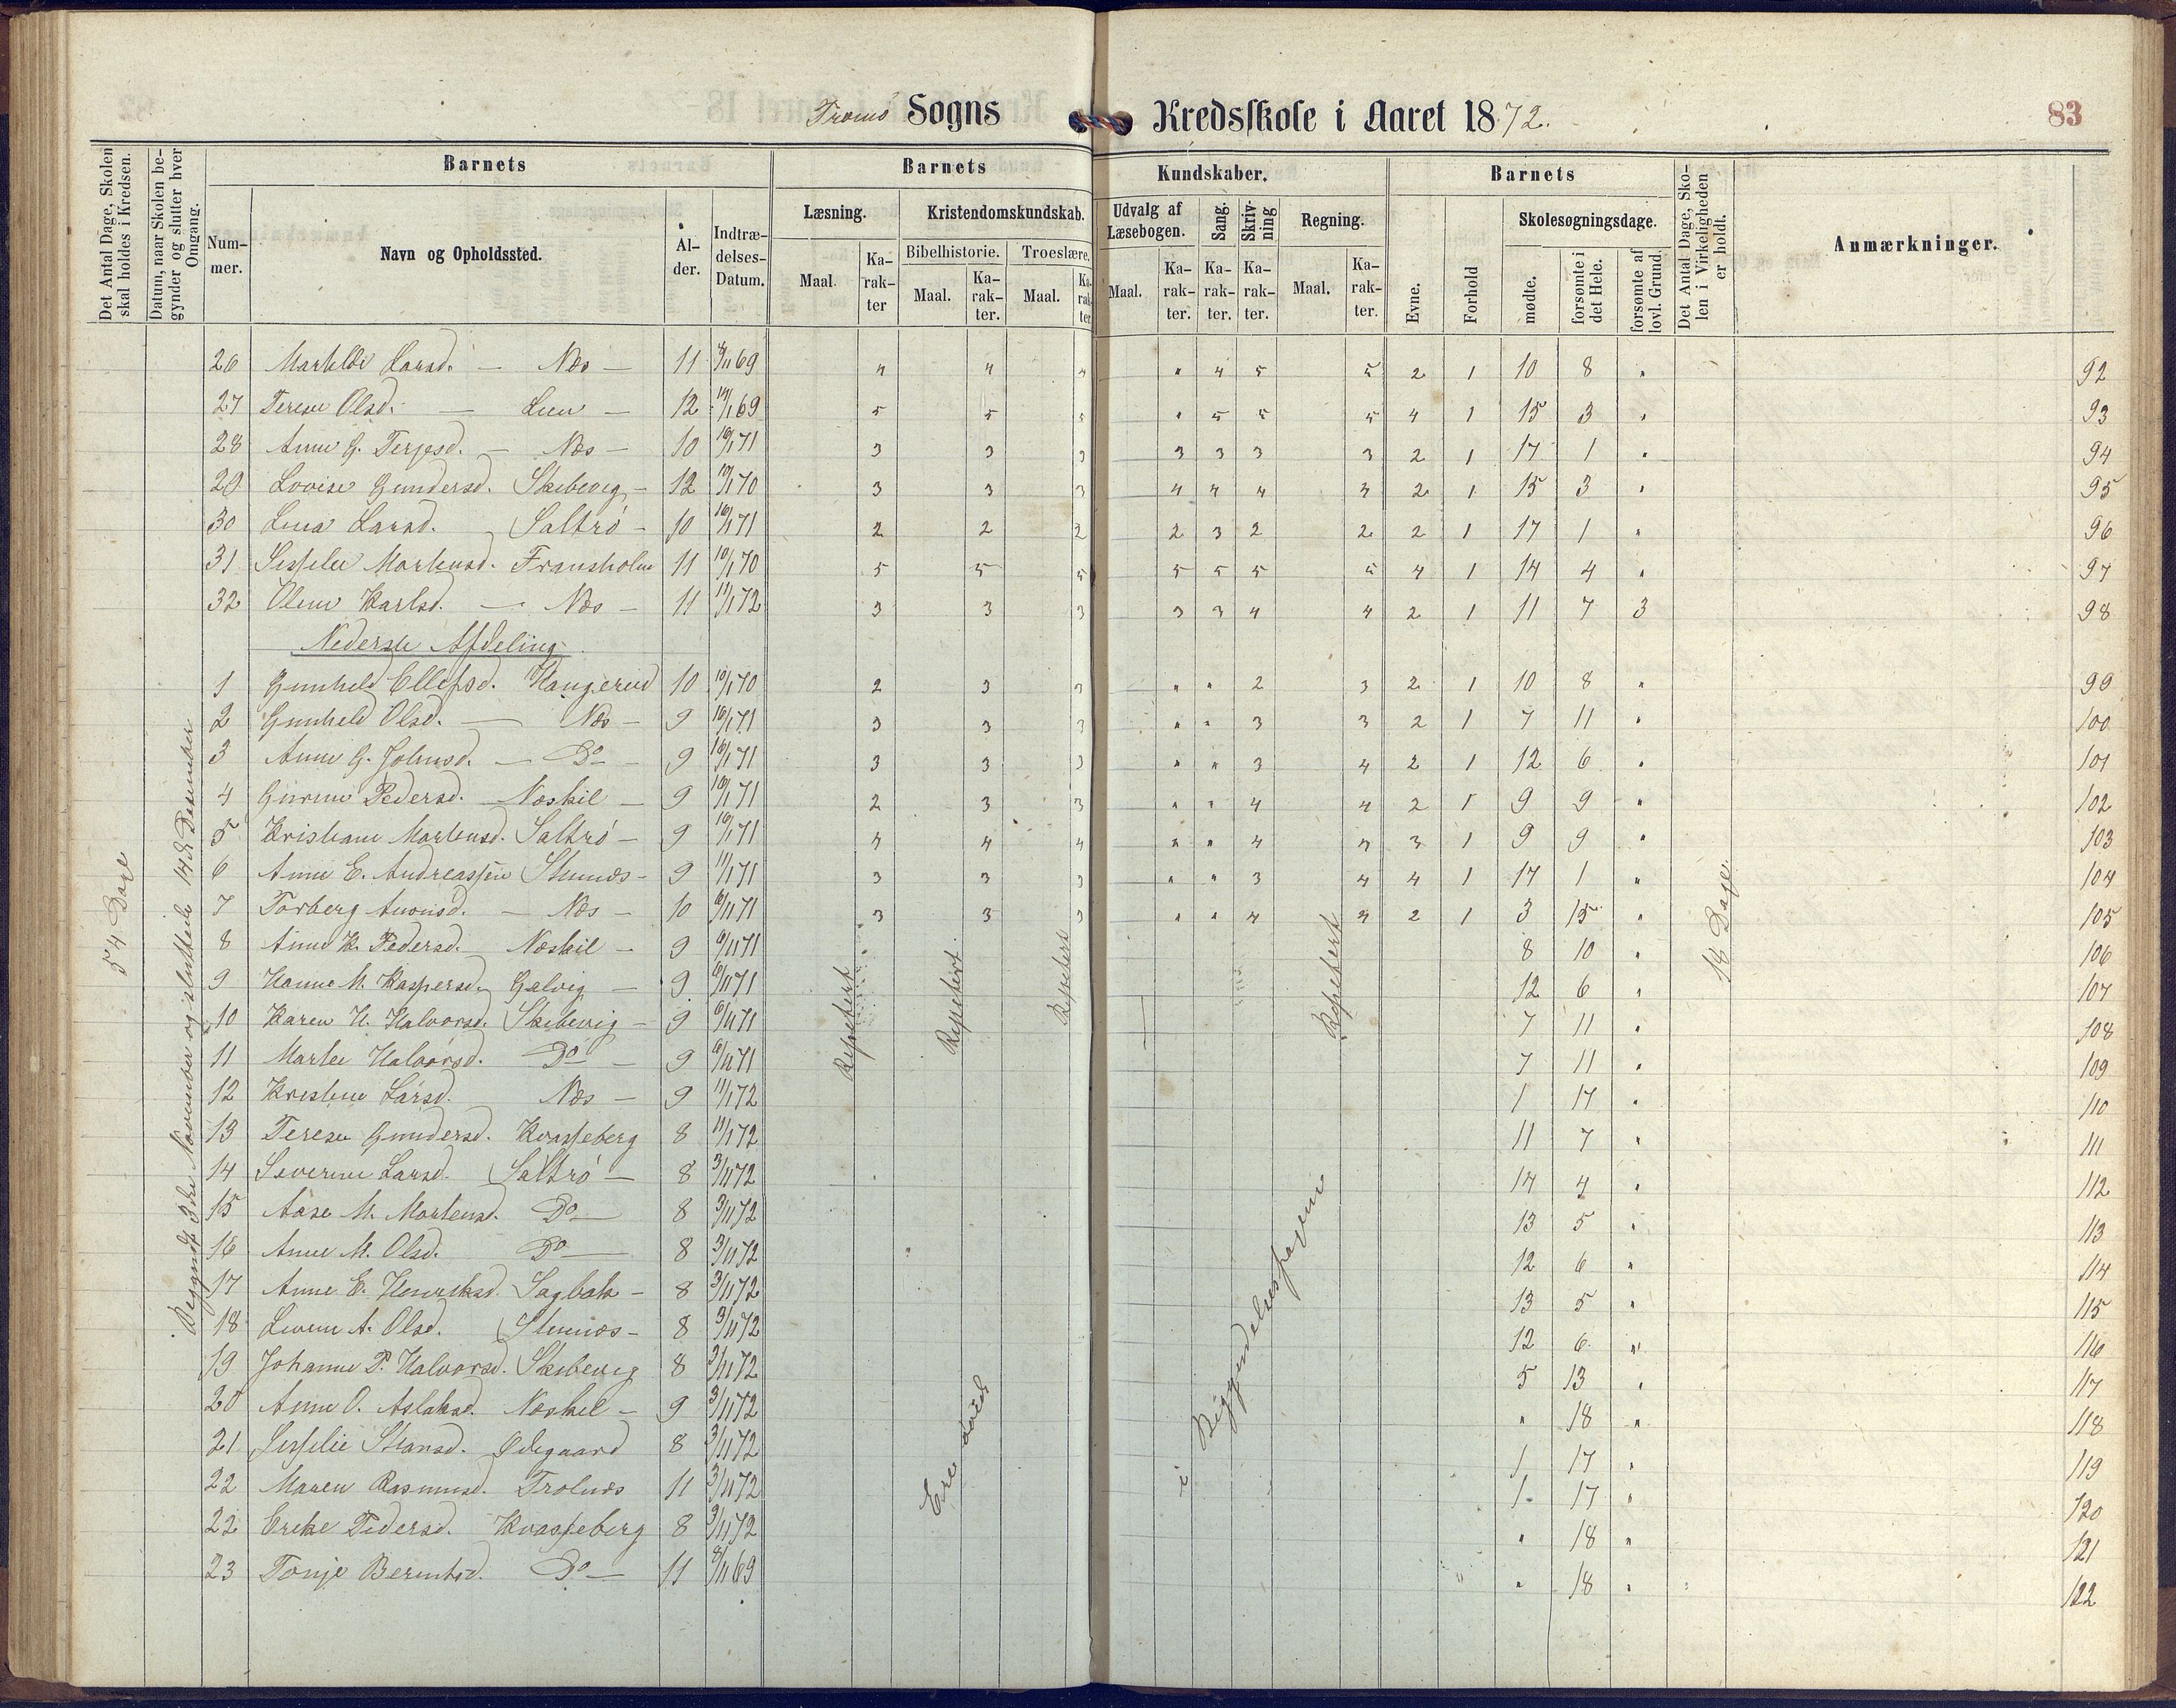 Tromø Sogns Kredsskole i Aaret 1872. 83
Det Antal Dage, Skolen skal holdes i Kredsen.
Datum, naar Skolen begynder og slutter hver Omgang.
Barnets Barnets Kundskaber. Barnets
Nummer. Navn og Opholdssted. Alder. Indtrædelses-Datum.
Læsning. Kristendomskundskab. Udvalg af Læsebogen. Sang. Skrivning Regning.
Bibelhistorie. Troeslære.
Maal. Karakter Maal. Karakter. Maal. Karakter Maal. Karakter. Karakter. Karakter. Maal. Karakter.
Evne. Forhold Skolesøgningsdage. mødte. forsømte i det Hele. forsømte af lovl. Grund.
Det Antal Dage, Skolen i Virkeligheden er holdt.
Anmærkninger.
26 Larsd. — Næs — 11 8/11 69 4 4 4 " 4 5 5 2 1 10 8 " 92
27 Terese Olsd. — — 12 69 5 5 5 " 5 5 5 4 1 15 3 " 93
28 Anne G. Terjesd. — Næs — 10 16/1 71 3 3 3 3 3 3 3 2 1 17 1 " 94
29 Lovise Gundersd. Skibevig — 12 10/1 70 3 3 3 4 4 4 4 2 1 15 3 " 95
30 Lina Larsd. Saltrø — 10 16/1 71 2 2 2 2 3 2 2 2 1 17 1 " 96
31 Martensd. Fransholm 11 10/1 70 5 5 5 5 5 5 5 4 1 14 4 " 97
32 Oline Karlsd. — Næs — 11 11/1 72 3 3 3 3 3 4 4 2 1 11 7 3 98
Nederste Afdeling
1 Gunhild Ellefsd. Haugerud 10 10/1 70 2 3 3 " " 2 3 2 1 10 8 " 99
2 Gunhild Olsd. — Næs — 9 16/1 71 3 3 3 " " 3 3 2 1 7 11 " 100
3 Anne G. Johnsd. — Do — 9 16/1 71 3 3 3 " " 3 4 2 1 12 6 " 101
4 Gurine Pedersd. Næskil — 9 16/1 71 2 3 3 " " 4 4 2 1 9 9 " 102
5 Kristiane Martensd. Saltrø — 9 16/1 71 4 4 4 " " 4 4 3 1 9 9 " 103
6 Anne E. Andreassen Stennæs — 9 11/1 71 3 3 3 " " 3 4 4 1 17 1 " 104
7 Torberg — Næs — 10 6/11 71 3 3 3 " " 4 4 2 1 3 15 " 105
8 Anne K. Pedersd. Næskil — 9 6/11 71 8 10 " 106
9 Hanne M. Kaspersd. Galvig — 9 6/11 71 12 6 " 107
10 Karen H. Halvorsd. Skibevig — 9 6/11 71 7 11 " 108
11 Marte Halvorsd. Do — 9 6/11 71 7 11 " 109
12 Kristine Larsd. Næs — 9 11/1 72 1 17 " 110
13 Terese Gundersd. Kvasseberg 8 11/1 72 11 7 " 111
14 Severine Larsd. Saltrø — 8 3/11 72 14 4 " 112
15 Aase M. Martensd. Do — 8 3/11 72 13 5 " 113
16 Anne M. Olsd. Do — 8 3/11 72 12 6 " 114
17 Anne E. Henriksd. Sagbak — 8 3/11 72 13 5 " 115
18 A. Olsd. Stennæs — 8 3/11 72 12 6 " 116
19 Johanne P. Halvorsd. Skibevig 8 3/11 72 5 13 " 117
20 Anne O. Aslaksd. Næskil — 9 3/11 72 " 18 " 118
21 Ødegaard 8 3/11 72 1 17 " 119
22 Maren Rasmusd. Trolnæs 11 3/11 72 1 17 " 120
22 Pedersd. Kvasseberg 8 3/11 72 " 18 " 121
23 Tonje Berntsd. Do — 11 8/11 69 " 18 " 122
54 Dage
Begyndt 3die November og sluttede 14de December
Repetert
Repetert
Repetert
Repetert
Ere i Begyndelses
18 Dage